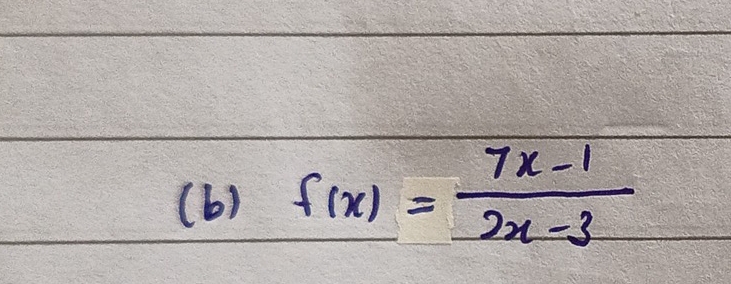 (b) f(x) = \frac{7x-1}{2x-3}